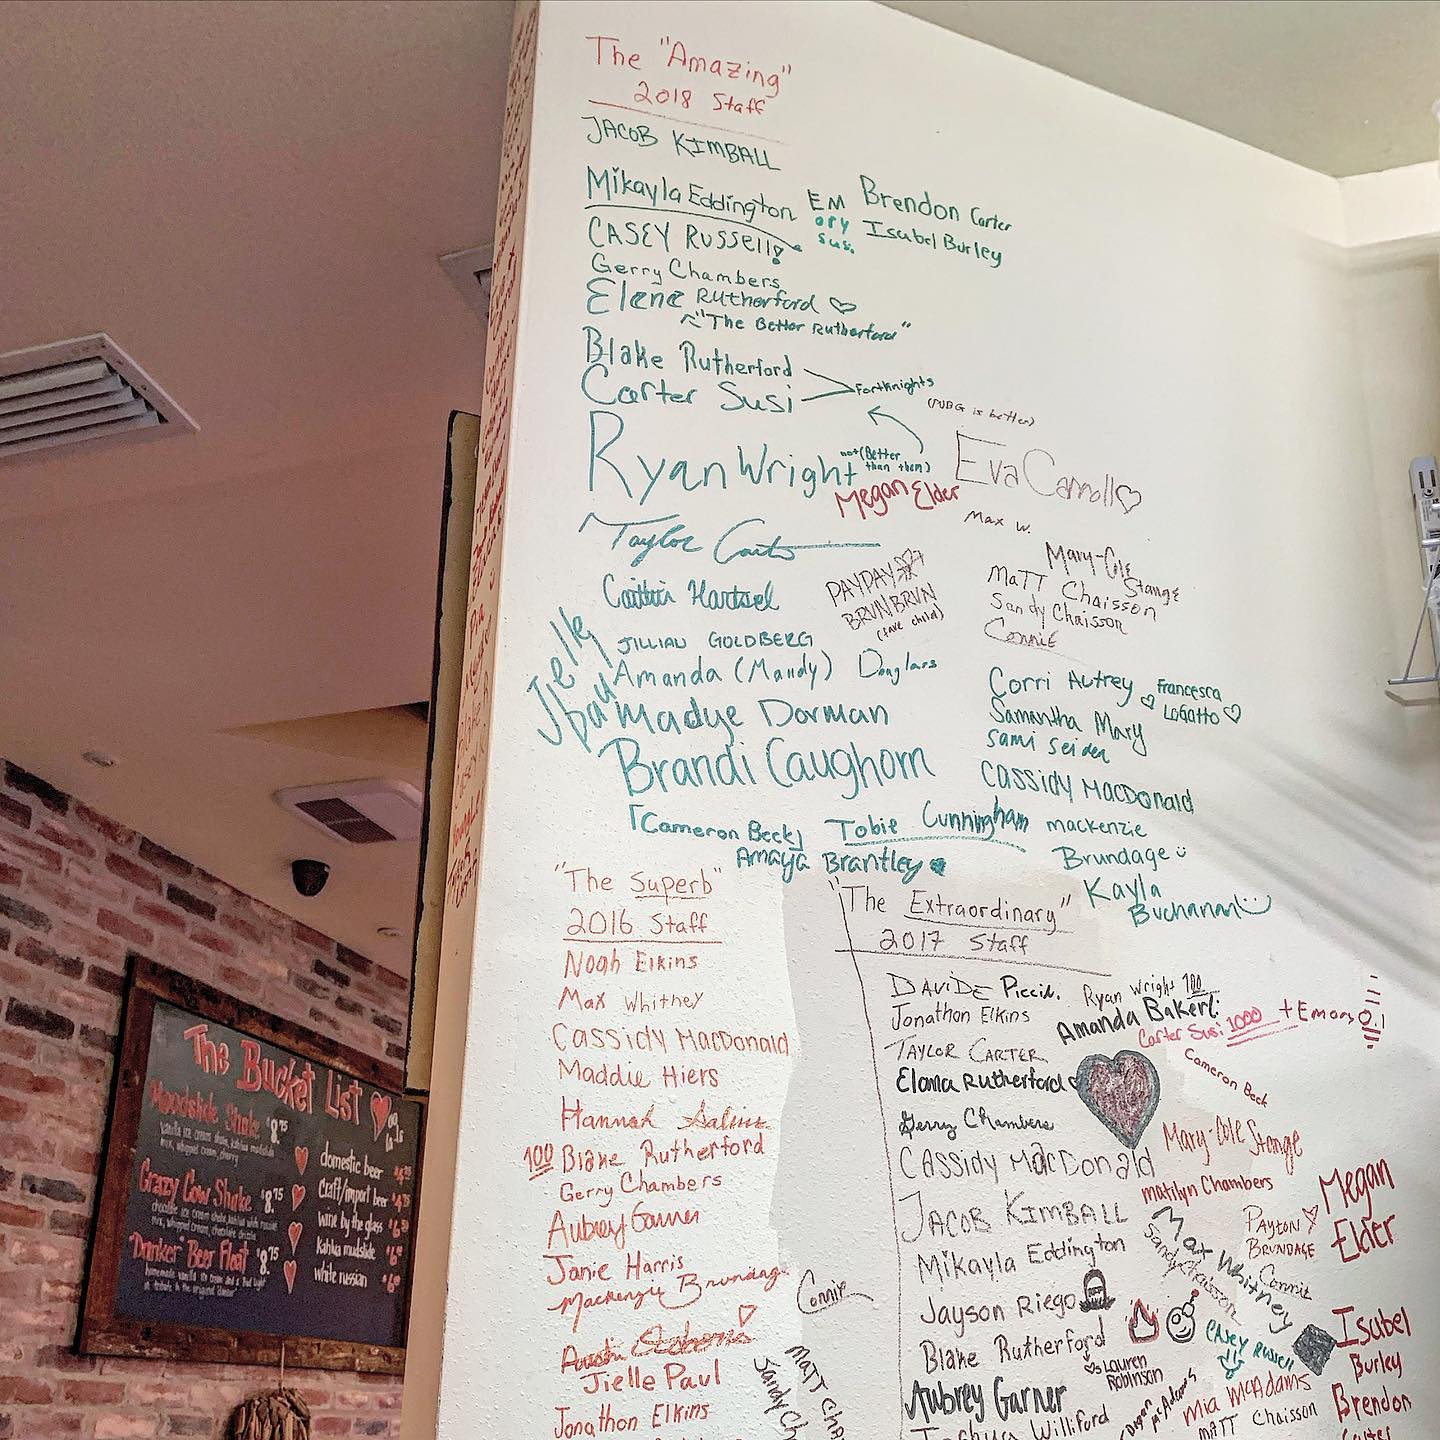 The "Amazing"
2018 Staff
JACOB KIMBALL
Mikayla Eddington
EM
ory
sus.
Brendon Carter
Isabel Burley
CASEY RUSSELL!
Gerry Chambers
Elana Rutherford ♡
^"The Better Rutherford"
Blake Rutherford
Carter Susi
FortKnights
(PUBG is better)
Ryan Wright
not (Better
than them)
Megan Elder
Eva Carroll ♡
Max W.
Taylor Carter
Caitlin Hartsel
PAYDAY
BRUN BRUN
(fave child)
Mary-Cole
Stange
MaTT Chaisson
Sandy Chaisson
Connie
Jelly
Jbay
JILLIAN GOLDBERG
Amanda (Mandy) Douglass
Madye Dorman
Brandi Caughorn
Corri Autrey
♡ Francesca
LoGatto ♡
Samantha Mary
Sami Seiden
CASSIDY MACDONALD
[Cameron Beck]
Tobie Cunningham
mackenzie
Brundage
Amaya Brantley
Kayla
Buchanan
"The Superb"
2016 Staff
Noah Elkins
Max Whitney
CASSIDY MACDONALD
Maddie Hiers
Hannah
100 Blake Rutherford
Gerry Chambers
Aubrey Garner
Janie Harris
Mackenzie Brundage
Austin
Jielle Paul
Jonathon Elkins
Connie
MATT
Sandy
"The Extraordinary"
2017 Staff
DAVIDE
Jonathon Elkins
TAYLOR CARTER
Elana Rutherford
Gerry Chambers
CASSIDY MACDONALD
JACOB KIMBALL
Mikayla Eddington
Jayson Riego
Blake Rutherford
Aubrey Garner
Joshua Williford
Ryan Wright 100
Amanda Baker
Carter Susi 1000 + Emory 0.1
Cameron Beck
Mary-Cole Stange
Matilyn Chambers
Max Whitney
Sandy Chaisson
PAYTON
BRUNDAGE
Connie
Megan
Elder
CASEY RUSSELL
Lauren
Robinson
Mia McAdams
MATT Chaisson
Isabel
Burley
Brendon
Carter
The Bucket List
Mudslide Shake $8.75
vanilla ice cream, kahlua mudslide
mix, whipped cream, cherry
Crazy Cow Shake $8.75
"Drinker" Beer Float $8.75
domestic beer
craft/import beer
wine by the glass
kahlua mudslide
white russian